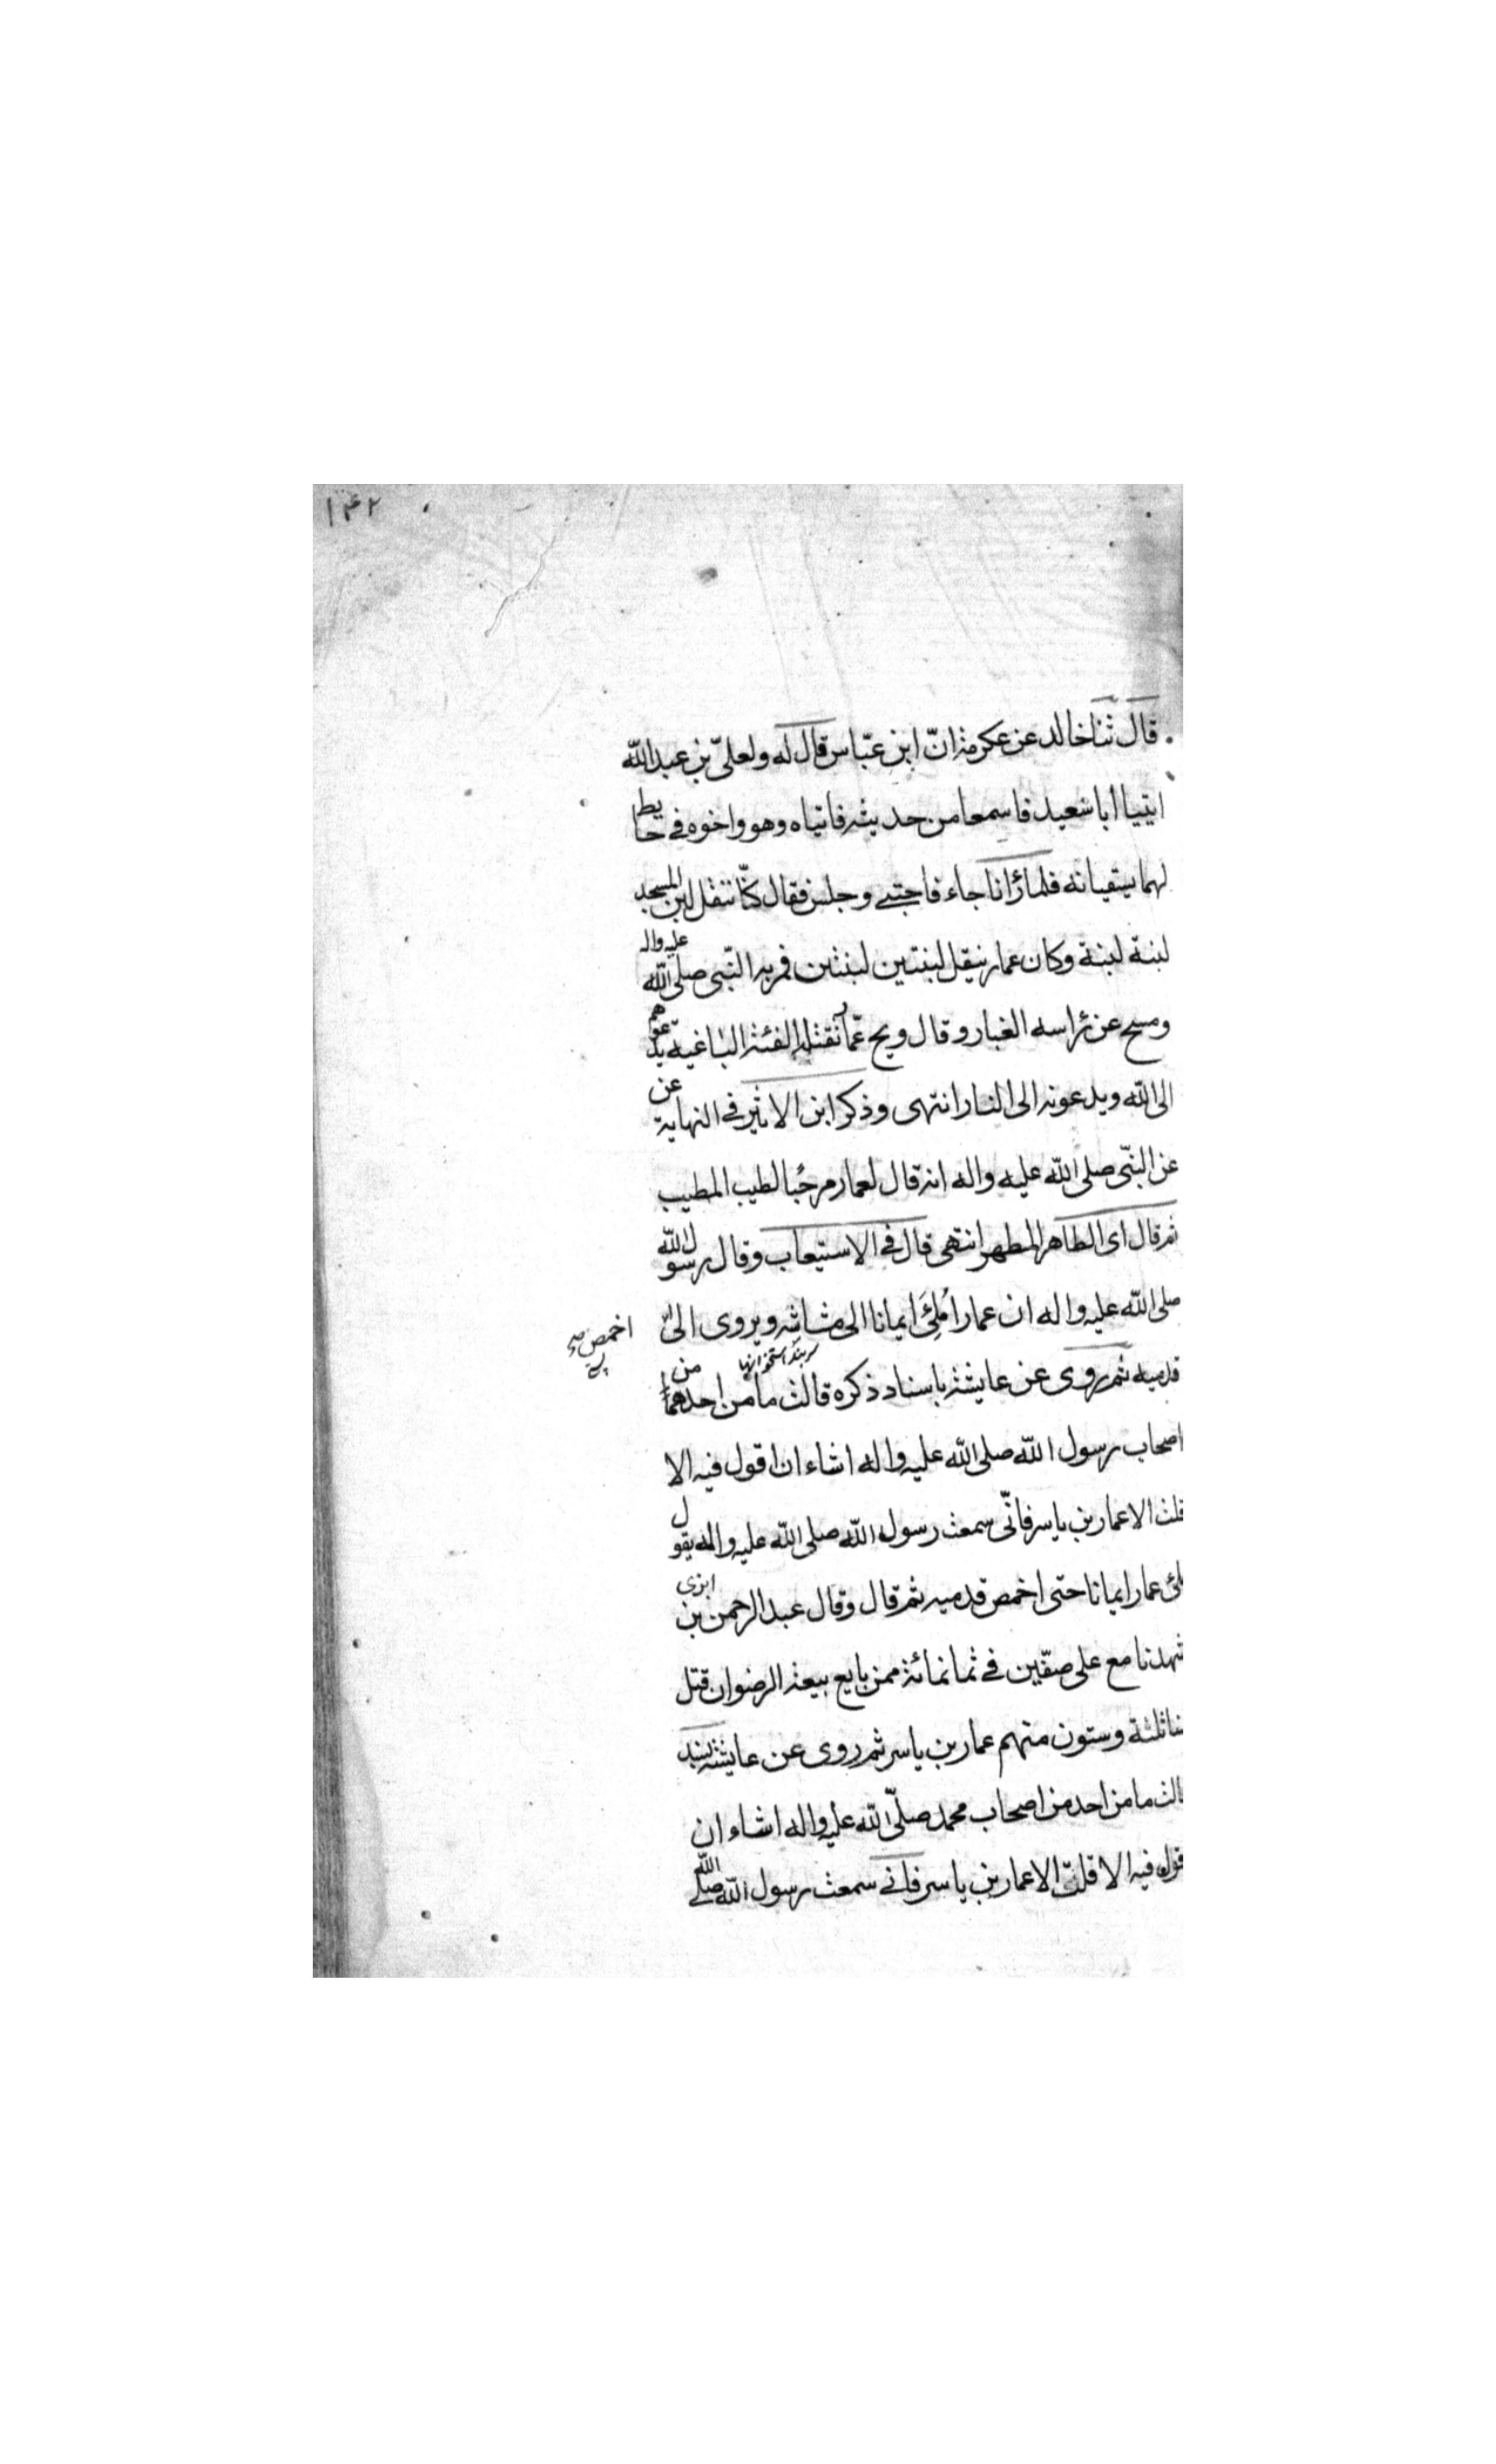 ١٤٢
قال ثنا خالد عن عكرمة انّ ابن عبّاس قال له ولعلىّ بن عبد الله
ايتيا أبا سعيد فاسمعا من حديثه فاتياه وهو واخوه فى حايط
لهما يسقيانه فلما رأنا جاء فاحتبى وجلس فقال كنّا ننقل لبن المسجد
لبنة لبنة وكان عمار ينقل لبنتين لبنتين فمر به النّبى صلى الله عليه واله
ومسح عن رأسه الغبار وقال ويح عمّار تقتله الفئة الباغية يدعوهم
الى الله ويدعونه الى النار انتهى وذكر ابن الاثير فى النهاية عن
عن النبّى صلى الله عليه واله انه قال لعمار مرحبا لطيب المطيب
ثم قال اى الطاهر المطهر انتهى قال فى الاستيعاب وقال رسول الله
صلى الله عليه واله ان عمارا مُلِئَ ايمانا الى مشاشه ويروى الى
اخمص
سر بند استخوانها
قدميه ثم روى عن عايشة باسناد ذكره قالت ما من احد من
اصحاب رسول الله صلى الله عليه واله اشاء ان اقول فيه الا
قلت الا عمار بن ياسر فانّى سمعت رسول الله صلى الله عليه واله يقول
ملئ عمار ايمانا حتى اخمص قدميه ثم قال وقال عبد الرحمن بن ابزى
شهدنا مع على صفّين فى ثمانمائة ممن بايع بيعة الرضوان قتل
منا ثلثة وستون منهم عمار بن ياسر ثم روى عن عايشة بسند
قالت ما من احد من اصحاب محمد صلّى الله عليه واله اشاء ان
اقول فيه الا قلت الا عمار بن ياسر فانى سمعت رسول الله صلى الله